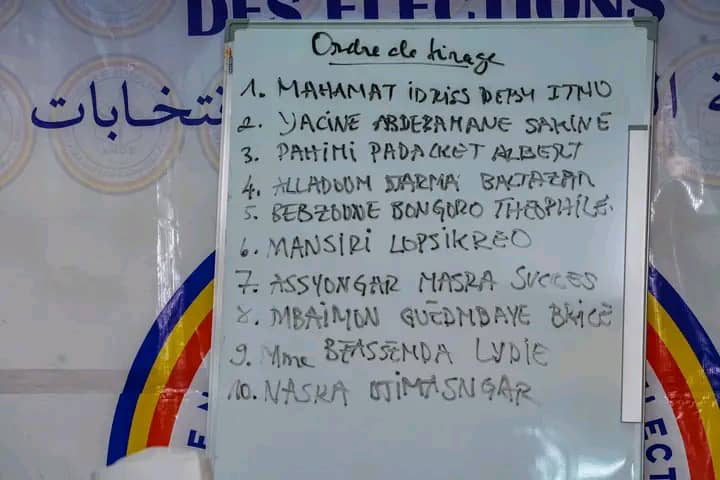 DES ELECTIONS
Ordre de tirage
1. MAHAMAT IDRISS DEBY ITNO
2. YACINE ABDERAMANE SAKINE
3. PAHIMI PADACKET ALBERT
4. ALLADOUM DJARMA BALTAZAR
5. BEBZOUNE BONGORO THEOPHILE.
6. MANSIRI LOPSIKREO
7. ASSYONGAR MASRA SUCCES
8. MBAIMON GUEDMBAYE BRICE
9. Mme BEASSEMDA LYDIE
10. NASRA DJIMASNGAR